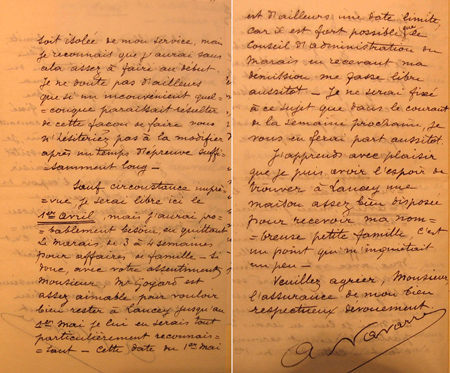 soit isolée de mon service, mais
je reconnais que j'aurai sans
cela assez à faire au début.
Je ne doute pas d'ailleurs
que si un inconvénient quel-
conque paraissait résulter
de cette façon de faire vous
n'hésiteriez pas à la modifier
après un temps d'épreuve suffi-
samment long —
Sauf circonstance impré-
vue je serai libre ici le
1er Avril, mais j'aurai pro-
bablement besoin, en quittant
Le Marais, de 3 à 4 semaines
pour affaires de famille — si
donc, avec votre assentiment,
Monsieur, Mr Gojard est
assez aimable pour vouloir
bien rester à Lancey jusqu'au
1er Mai je lui en serais tout
particulièrement reconnais-
sant — Cette date du 1er Mai
est d'ailleurs une date limite
car il est fort possible que le
Conseil d'administration du
Marais en recevant ma
démission me fasse libre
aussitôt — Je ne serai fixé
à ce sujet que dans le courant
de la semaine prochaine, je
vous en ferai part aussitôt.
J'apprends avec plaisir
que je puis avoir l'espoir de
trouver à Lancey une
maison assez bien disposée
pour recevoir ma nom-
breuse petite famille c'est
un point qui m'inquiétait
un peu —
Veuillez agréer, Monsieur
l'assurance de mon bien
respectueux dévouement
A Navarre